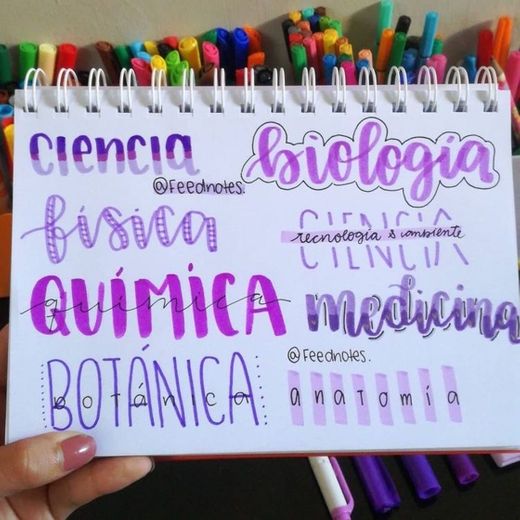 ciencia
@Feednotes.
biología
física
CIENCIA
tecnología & ambiente
CIENCIA
QUÍMICA
química
medicina
@Feednotes.
BOTÁNICA
botánica
anatomía